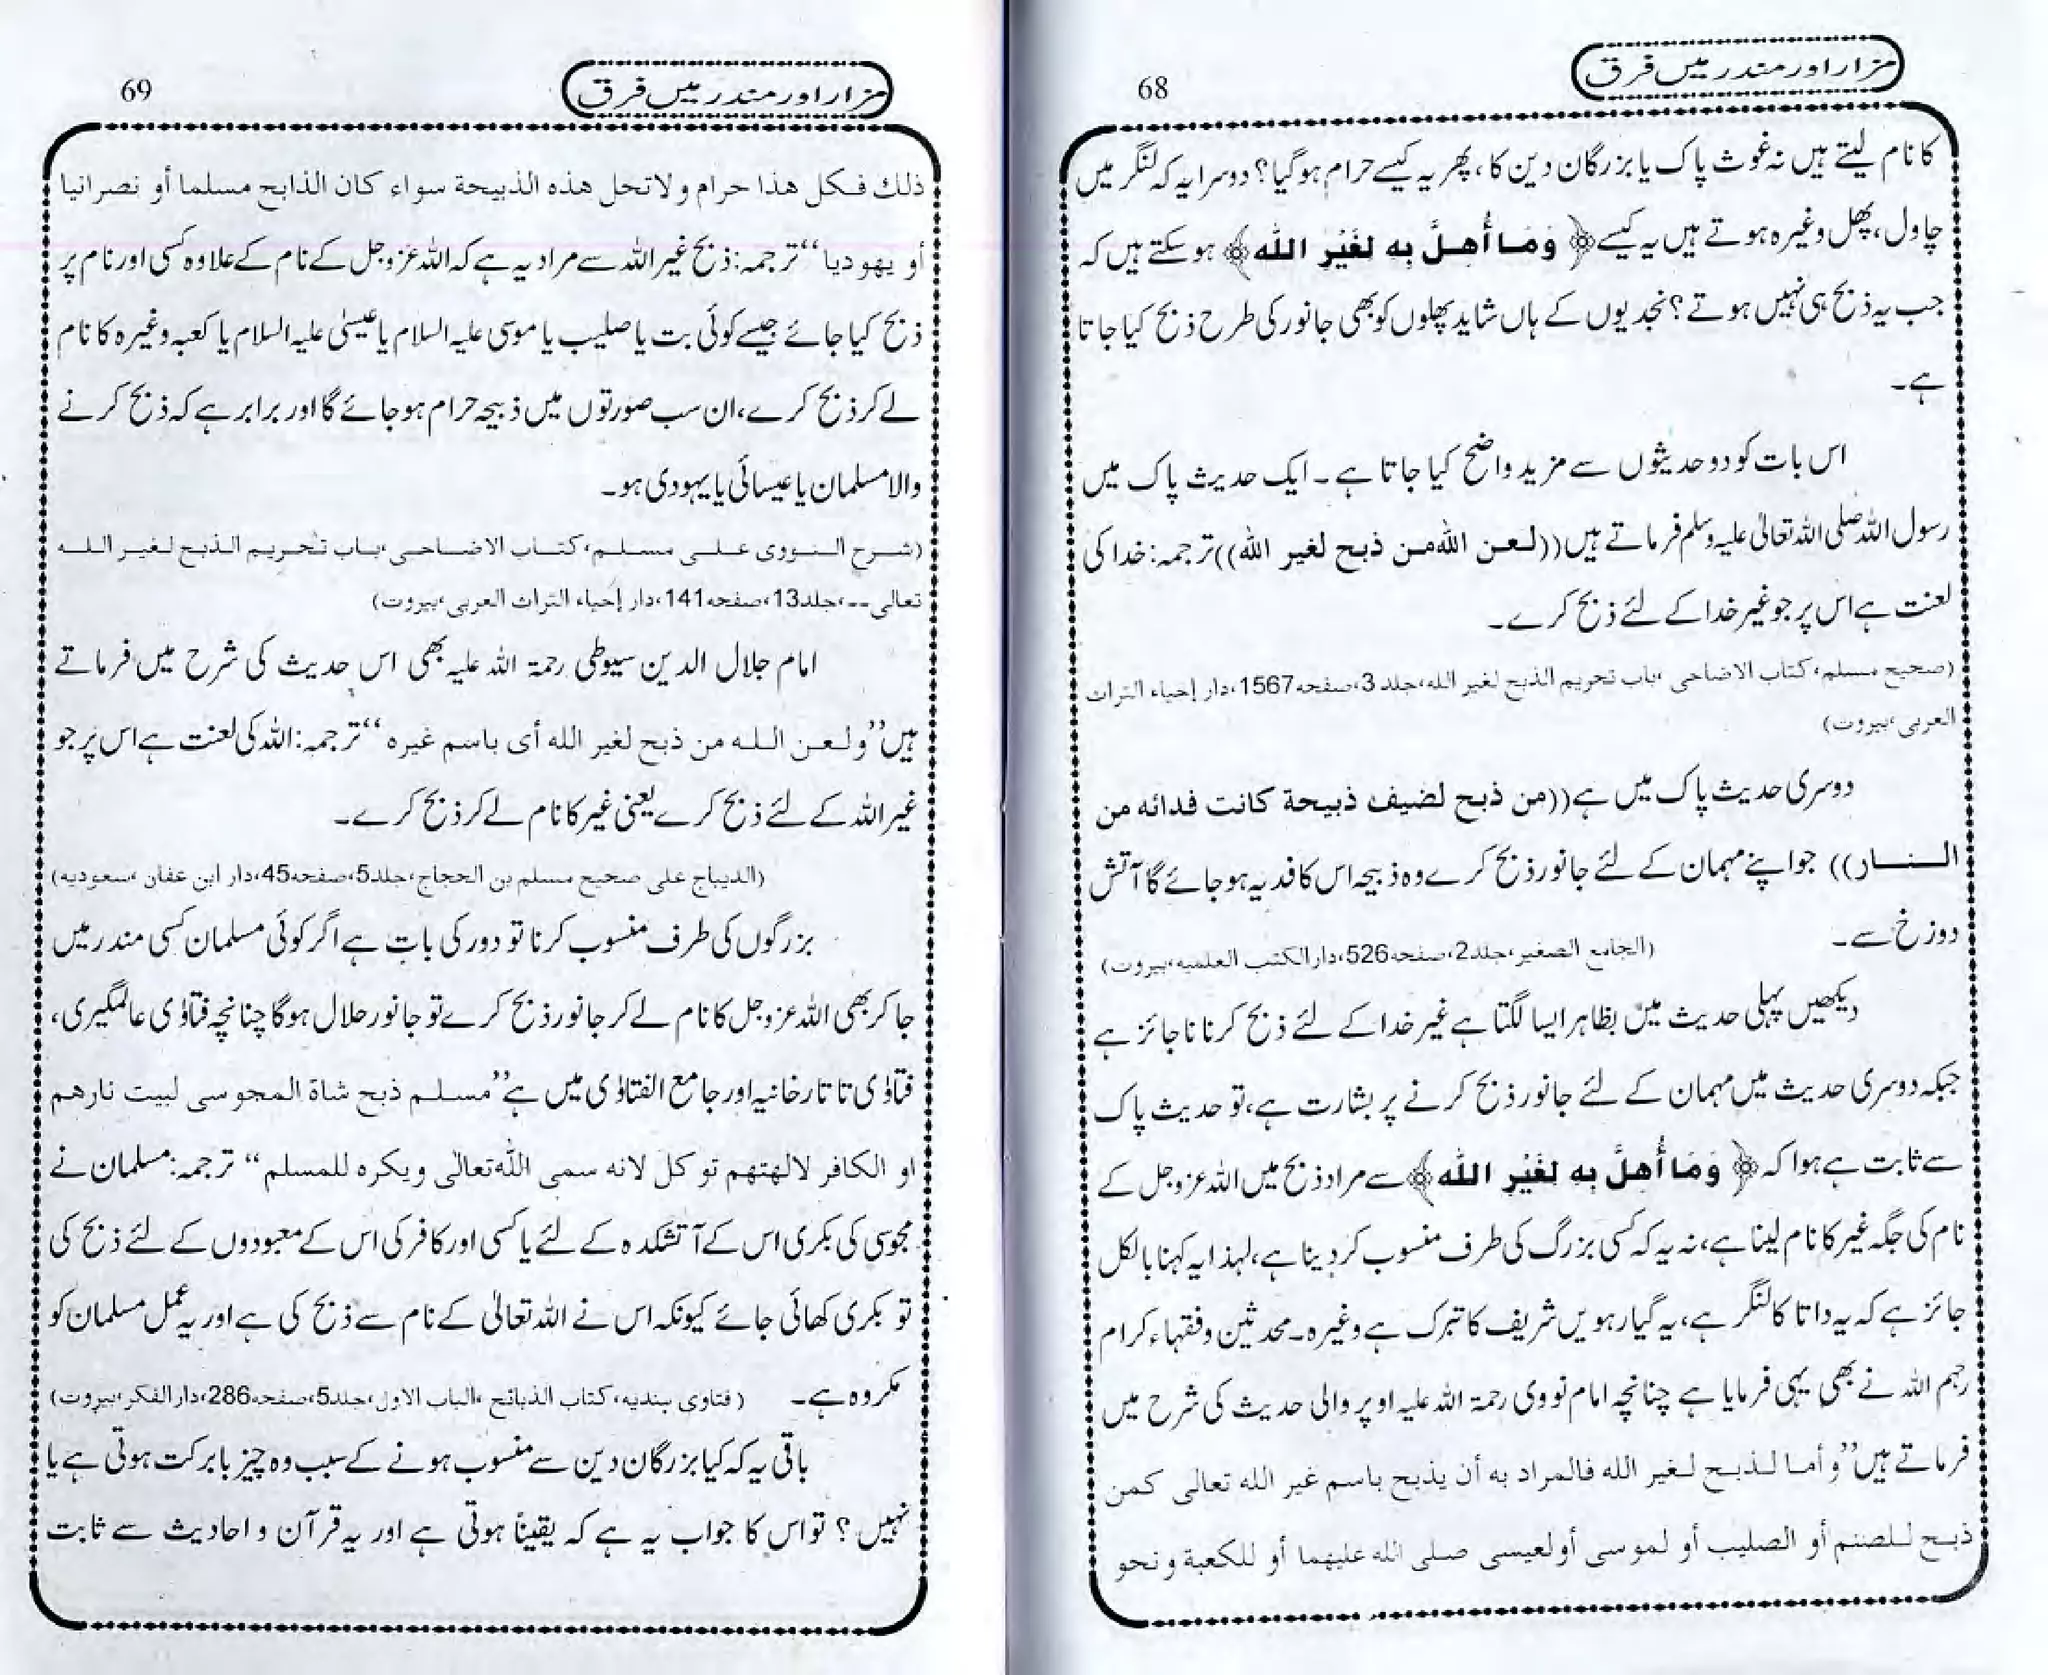 مزار اور مندر میں فرق
68
کا نام لیتے ہیں نہ غوث پاک یا بزرگان دین کا، پھر یہ کیسے حرام ہو گیا؟ دوسرا یہ کہ لنگر میں
چاول، پھل وغیرہ ہوتے ہیں یہ کیسے ﴿وَمَا أُهِلَّ بِه لِغَيْرِ الله﴾ ہو سکتے ہیں کہ
جب یہ ذبح ہی نہیں ہوتے؟ نجدیوں کے ہاں شاید پھلوں کو بھی جانور کی طرح ذبح کیا جاتا
ہے۔
اس بات کو دو حدیثوں سے مزید واضح کیا جاتا ہے۔ ایک حدیث پاک میں
رسول اللہ صلی اللہ تعالیٰ علیہ وسلم فرماتے ہیں ((لعن الله من ذبح لغير الله)) ترجمہ: خدا کی
لعنت ہے اس پر جو غیر خدا کے لئے ذبح کرے۔
(صحیح مسلم، کتاب الاضاحی، باب تحریم الذبح لغیر الله، جلد3، صفحہ1567، دار إحیاء التراث
العربی، بیروت)
دوسری حدیث پاک میں ہے ((من ذبح لضيف ذبيحة كانت فدائه من
النار)) جو اپنے مہمان کے لئے جانور ذبح کرے وہ ذبیحہ اس کا فدیہ ہو جائے گا آتش
دوزخ سے۔ (الجامع الصغیر، جلد2، صفحہ526، دار الکتب العلمیه، بیروت)
دیکھیں پہلی حدیث میں بظاہر ایسا لگتا ہے غیر خدا کے لئے ذبح کرنا ناجائز ہے
جبکہ دوسری حدیث میں مہمان کے لئے جانور ذبح کرنے پر بشارت ہے، تو حدیث پاک
سے ثابت ہے ہوا کہ ﴿وَمَا أُهِلَّ بِه لِغَيْرِ الله﴾ سے مراد ذبح میں اللہ عزوجل کے
نام کی جگہ غیر کا نام لینا ہے، نہ یہ کہ کسی بزرگ کی طرف منسوب کر دینا ہے، لہذا یہ کہنا بالکل
جائز ہے کہ یہ داتا کا لنگر ہے، یہ گیارہویں شریف کا تبرک ہے وغیرہ۔ محدثین و فقہاء کرام
رحمہم اللہ نے بھی یہی فرمایا ہے چنانچہ امام نووی رحمۃ اللہ علیہ اوپر والی حدیث کی شرح میں
فرماتے ہیں ”و أما لذبح لغير الله فالمراد به أن يذبح باسم غير الله تعالى كمن
ذبح للصنم أو الصليب أو لموسى أولعيسى صلى الله عليهما أو للكعبة ونحو
مزار اور مندر میں فرق
69
ذلك فكل هذا حرام ولاتحل هذه الذبيحة سواء كان الذابح مسلما أو نصرانيا
أو يهوديا“ ترجمہ: ذبح غیر اللہ سے مراد یہ ہے کہ اللہ عزوجل کے نام کے علاوہ کسی اور نام پر
ذبح کیا جائے جیسے کوئی بت یا صلیب یا موسی علیہ السلام یا عیسیٰ علیہ السلام یا کعبہ وغیرہ کا نام
لے کر ذبح کرے، ان سب صورتوں میں ذبیحہ حرام ہو جائے گا اور برابر ہے کہ ذبح کرنے
والا مسلمان یا عیسائی یا یہودی ہو۔
(شرح النووی علی مسلم، کتاب الاضاحی، باب تحریم الذبح لغیر الله
تعالی۔۔، جلد13، صفحہ141، دار إحیاء التراث العربی، بیروت)
امام جلال الدین سیوطی رحمۃ اللہ علیہ بھی اس حدیث کی شرح میں فرماتے
ہیں ”ولعن الله من ذبح لغير الله أى باسم غيره“ ترجمہ: اللہ کی لعنت ہے اس پر جو
غیر اللہ کے لئے ذبح کرے یعنی غیر کا نام لے کر ذبح کرے۔
(الدیباج علی صحیح مسلم بن الحجاج، جلد5، صفحہ45، دار ابن عفان، سعودیه)
بزرگوں کی طرف منسوب کرنا تو دور کی بات ہے اگر کوئی مسلمان کسی مندر میں
جا کر بھی اللہ عزوجل کا نام لے کر جانور ذبح کرے تو جانور حلال ہوگا چنانچہ فتاوٰی عالمگیری،
فتاوٰی تاتارخانیہ اور جامع الفتاوٰی میں ہے ”مسلم ذبح شاة المجوسى لبيت نارهم
او الكافر لالهتهم توكل لانه سمى الله تعالٰى ويكره للمسلم“ ترجمہ: مسلمان نے
مجوسی کی بکری اس کے آتشکدہ کے لئے یا کسی اور کافر کی اس کے معبودوں کے لئے ذبح کی
تو بکری کھائی جائے کیونکہ اس نے اللہ تعالیٰ کے نام سے ذبح کی ہے اور یہ عمل مسلمان کو
مکروہ ہے۔ (فتاوی ہندیه، کتاب الذبائح، الباب الاول، جلد5، صفحہ286، دار الفکر، بیروت)
باقی یہ کہ کیا بزرگان دین سے منسوب ہونے کے سبب وہ چیز بابرکت ہوتی ہے یا
نہیں؟ تو اس کا جواب یہ ہے کہ یقیناً ہوتی ہے اور یہ قرآن و احادیث سے ثابت